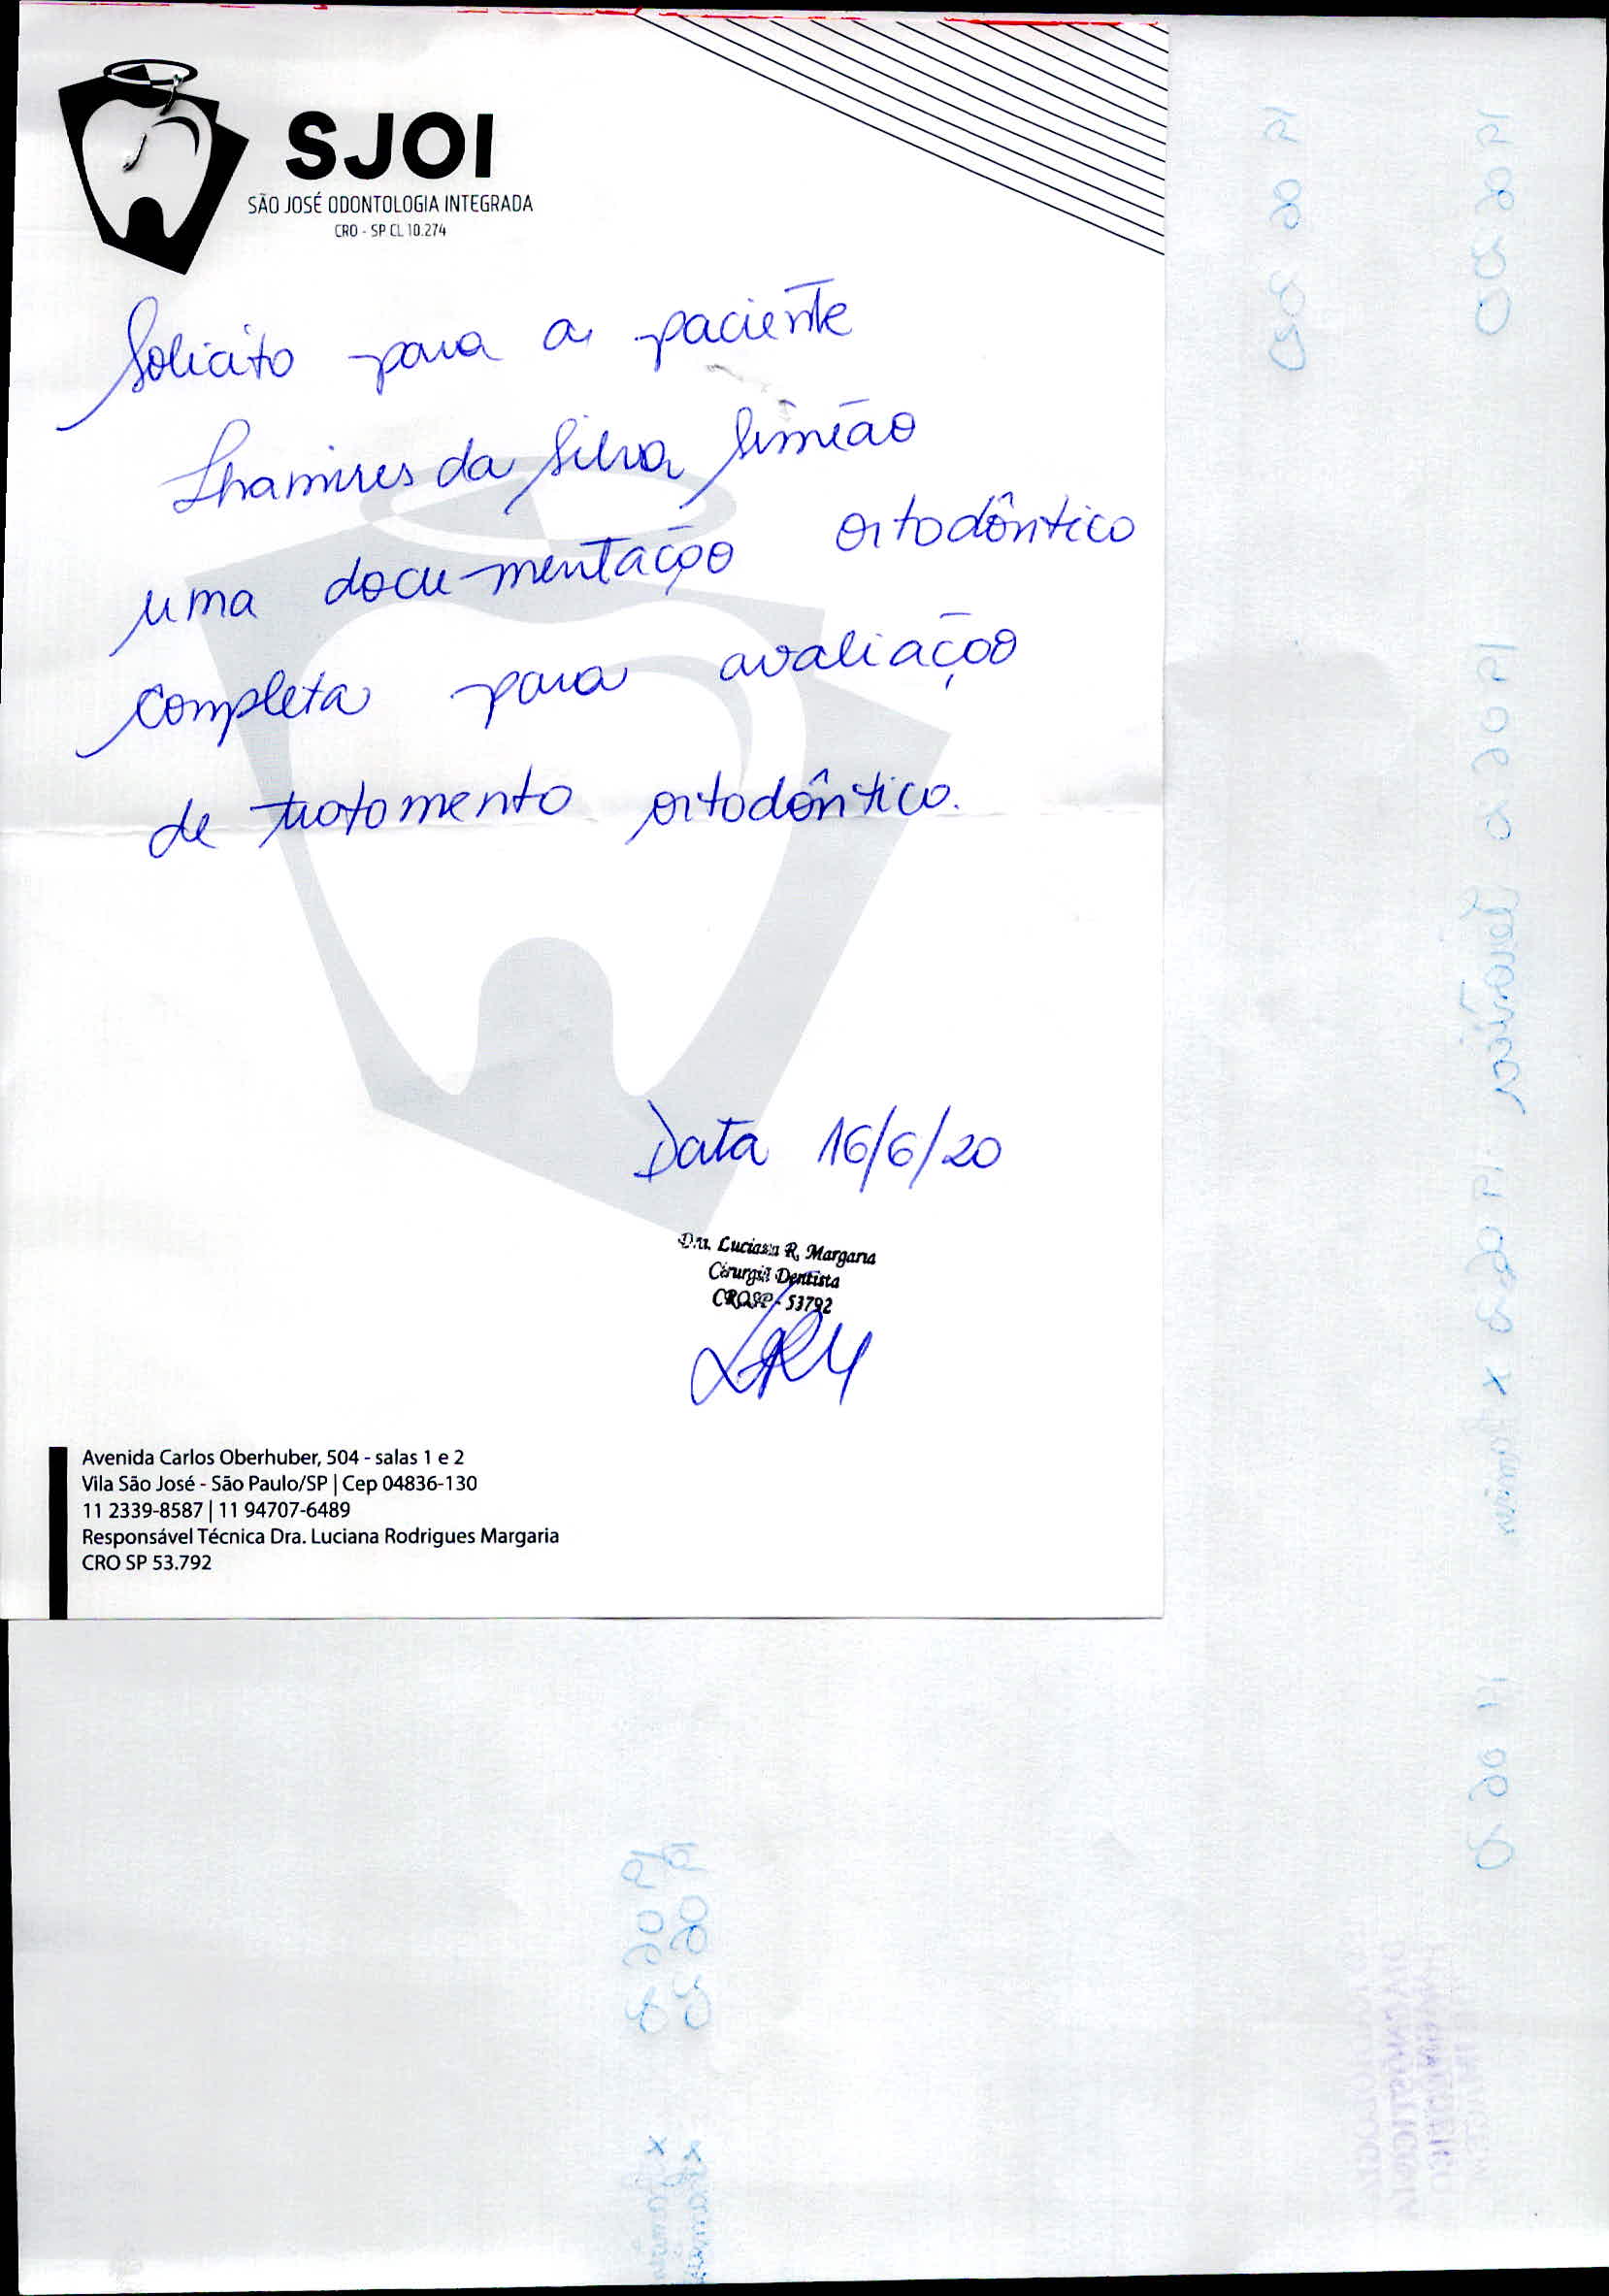 SJOI
SÃO JOSÉ ODONTOLOGIA INTEGRADA
CRO - SP CL 10.274
Solicito para a paciente
Thamires da Silva Simião
uma documentação ortodôntico
completa para avaliação
de tratamento ortodôntico.
Data 16/6/20
Dra. Luciana R. Margaria
Cirurgiã Dentista
CROSP - 53792
LRM
Avenida Carlos Oberhuber, 504 - salas 1 e 2
Vila São José - São Paulo/SP | Cep 04836-130
11 2339-8587 | 11 94707-6489
Responsável Técnica Dra. Luciana Rodrigues Margaria
CRO SP 53.792